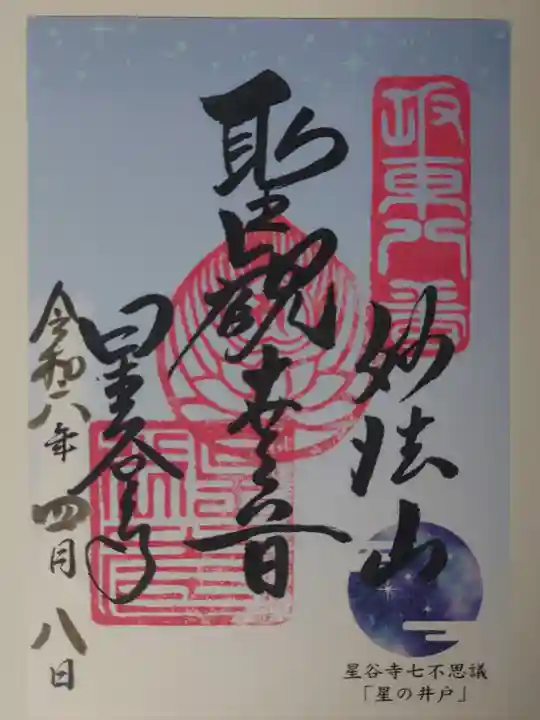 坂東八番
妙法山
聖観世音
星谷寺
令和六年 四月 八日
星谷寺七不思議
「星の井戸」